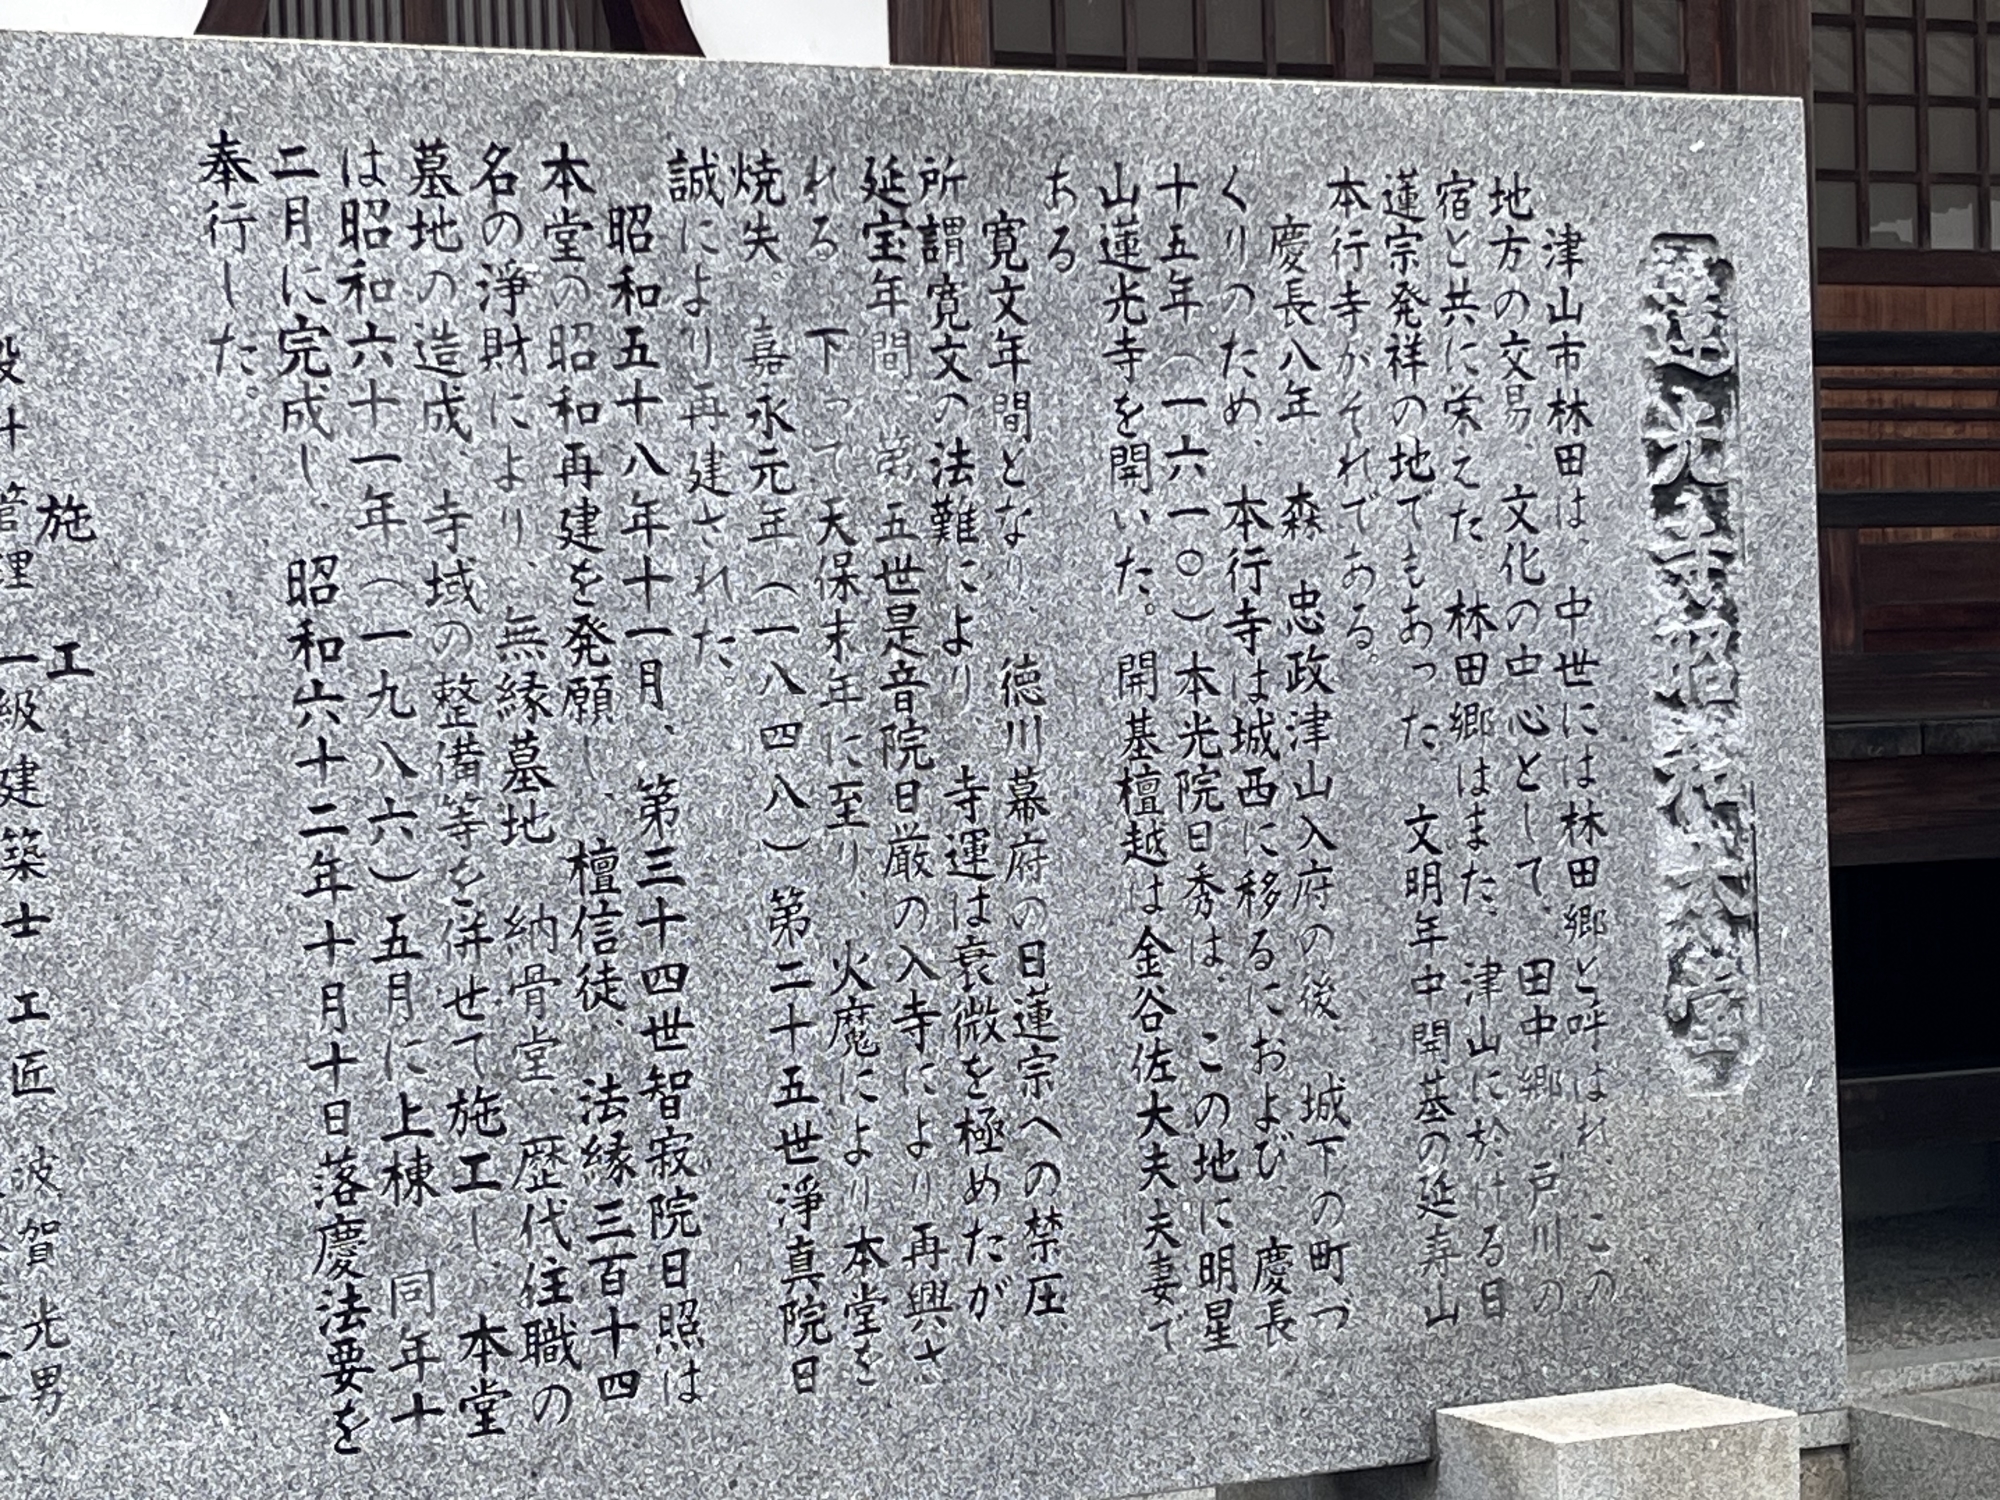 蓮光寺昭和本堂
津山市林田は、中世には林田郷と呼ばれ、この
地方の交易、文化の中心として、田中郷、戸川の
宿と共に栄えた。林田郷はまた、津山に於ける日
蓮宗発祥の地でもあった。文明年中開基の延寿山
本行寺がそれである。
慶長八年、森 忠政津山入府の後、城下の町づ
くりのため、本行寺は城西に移るにおよび、慶長
十五年（一六一〇）本光院日秀は、この地に明星
山蓮光寺を開いた。開基檀越は金谷佐大夫夫妻で
ある
寛文年間となり、徳川幕府の日蓮宗への禁圧、
所謂寛文の法難により、寺運は衰微を極めたが、
延宝年間、第五世是音院日厳の入寺により再興さ
れる。下って天保末年に至り、火魔により本堂を
焼失。嘉永元年（一八四八）第二十五世浄真院日
誠により再建された。
昭和五十八年十一月、第三十四世智寂院日照は
本堂の昭和再建を発願し、檀信徒、法縁三百十四
名の浄財により、無縁墓地、納骨堂、歴代住職の
墓地の造成、寺域の整備等を併せて施工し、本堂
は昭和六十一年（一九八六）五月に上棟、同年十
二月に完成し、昭和六十二年十月十日落慶法要を
奉行した。
施工
設計管理 一級建築士 工匠 波賀光男